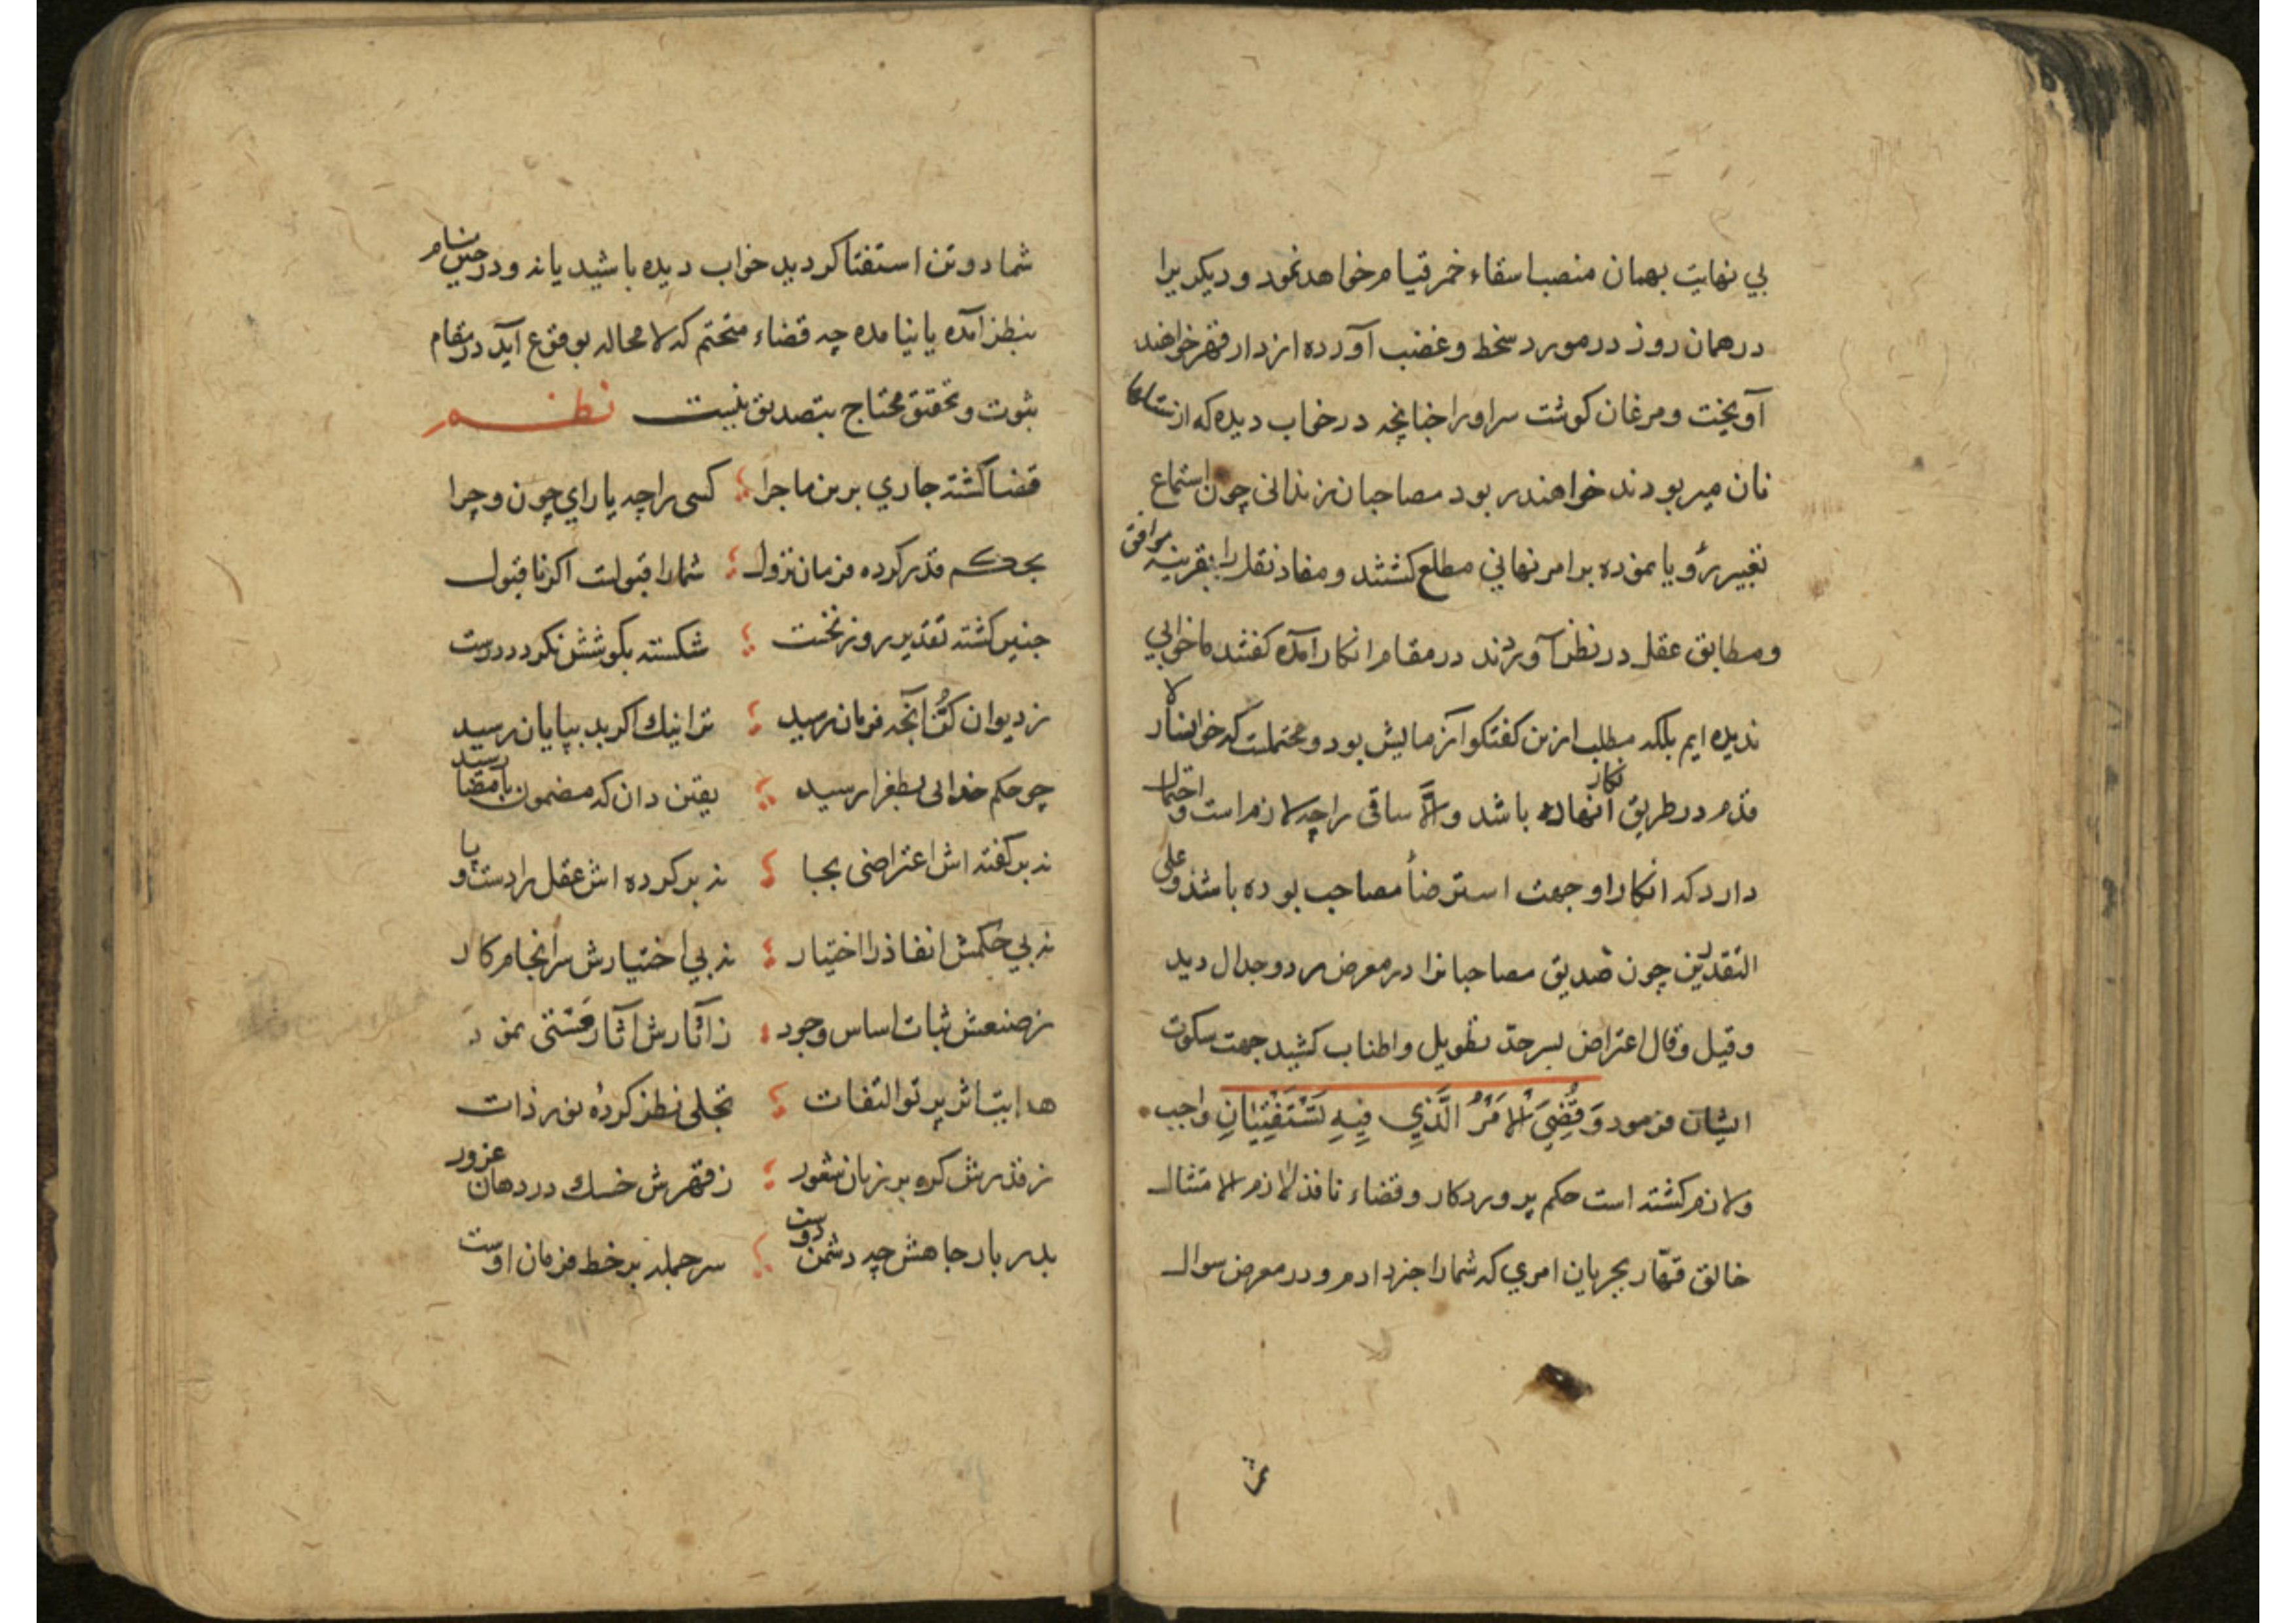 بي نهايت بهمان منصب اسقاء خمر قيام خواهد نمود و ديكريرا
در همان روز در مورد سخط و غضب آورده از دار قهر خواهند
آويخت و مرغان كوشت سر اورا چنانچه در خواب ديده كه از
نان ميربودند خواهند ربود مصاحبان زنداني چون استماع
تعبير رؤيا نموده بر امر نهاني مطلع كشتند و مفاد نقل را بقرينه موافق
و مطابق عقل در نظر آوردند در مقام انكار آمده كفتند ما خوابي
نديده ايم بلكه مطلب ازين كفتكو آزمايش بود و محتملست كه
قدم در طريق انكار نهاده باشد والّا ساقي را چه لازم است و احتمال
دارد كه انكار او جهت استرضأ مصاحب بوده باشد و علي
التقديرين چون صديق مصاحبانرا در معرض رد و جدال ديد
و قيل و قال اعتراض بسر حدّ تطويل و اطناب كشيد جهت سكوت
ايشان فرمود وَقُضِيَ الْاَمْرُ الَّذِي فِيهِ تَسْتَفْتِيَانِ واجب
و لازم كشته است حكم پروردكار و قضاء نافذ لازم الامتثال
خالق قهّار بجريان امري كه شمارا خبر دادم و در معرض سوال
شما دو تن استفتا كرديد خواب ديده باشيد يا نه و در حين منام
بنظر آمده يا نيامده چه قضاء متحتم كه لا محاله بوقوع آيد در مقام
ثبوت و تحقق محتاج بتصديق نيست نظم
قضا كشته جاري برين ماجرا كسي را چه ياراي چون و چرا
بحكم قدر كرده فرمان نزول شمارا قبولست اكر نا قبول
چنين كشته تقدير روز نخست شكسته بكوشش نكردد درست
ز ديوان كُنّا آنچه فرمان رسيد ترا نيك اكر بد بپايان رسيد
چو حكم خدائي بطغرا رسيد يقين دان كه مضمون بامضا رسيد
نه بر كفته اش اعتراضي بجا نه بر كرده اش عقل را دست و پا
نه بي حكمش انفاذ را اختيار نه بي اختيارش سرانجام كار
ز صنعش ثبات اساس وجود ز آثارش آثار هستي نمود
هدايت اثر پرتو التفات تجلي نظر كرده نور ذات
ز قدرش كره بر زبان شعور ز قهرش خسك در دهان غرور
بدربار جاهش چه دشمن چه دوست سر جمله بر خط فرمان اوست